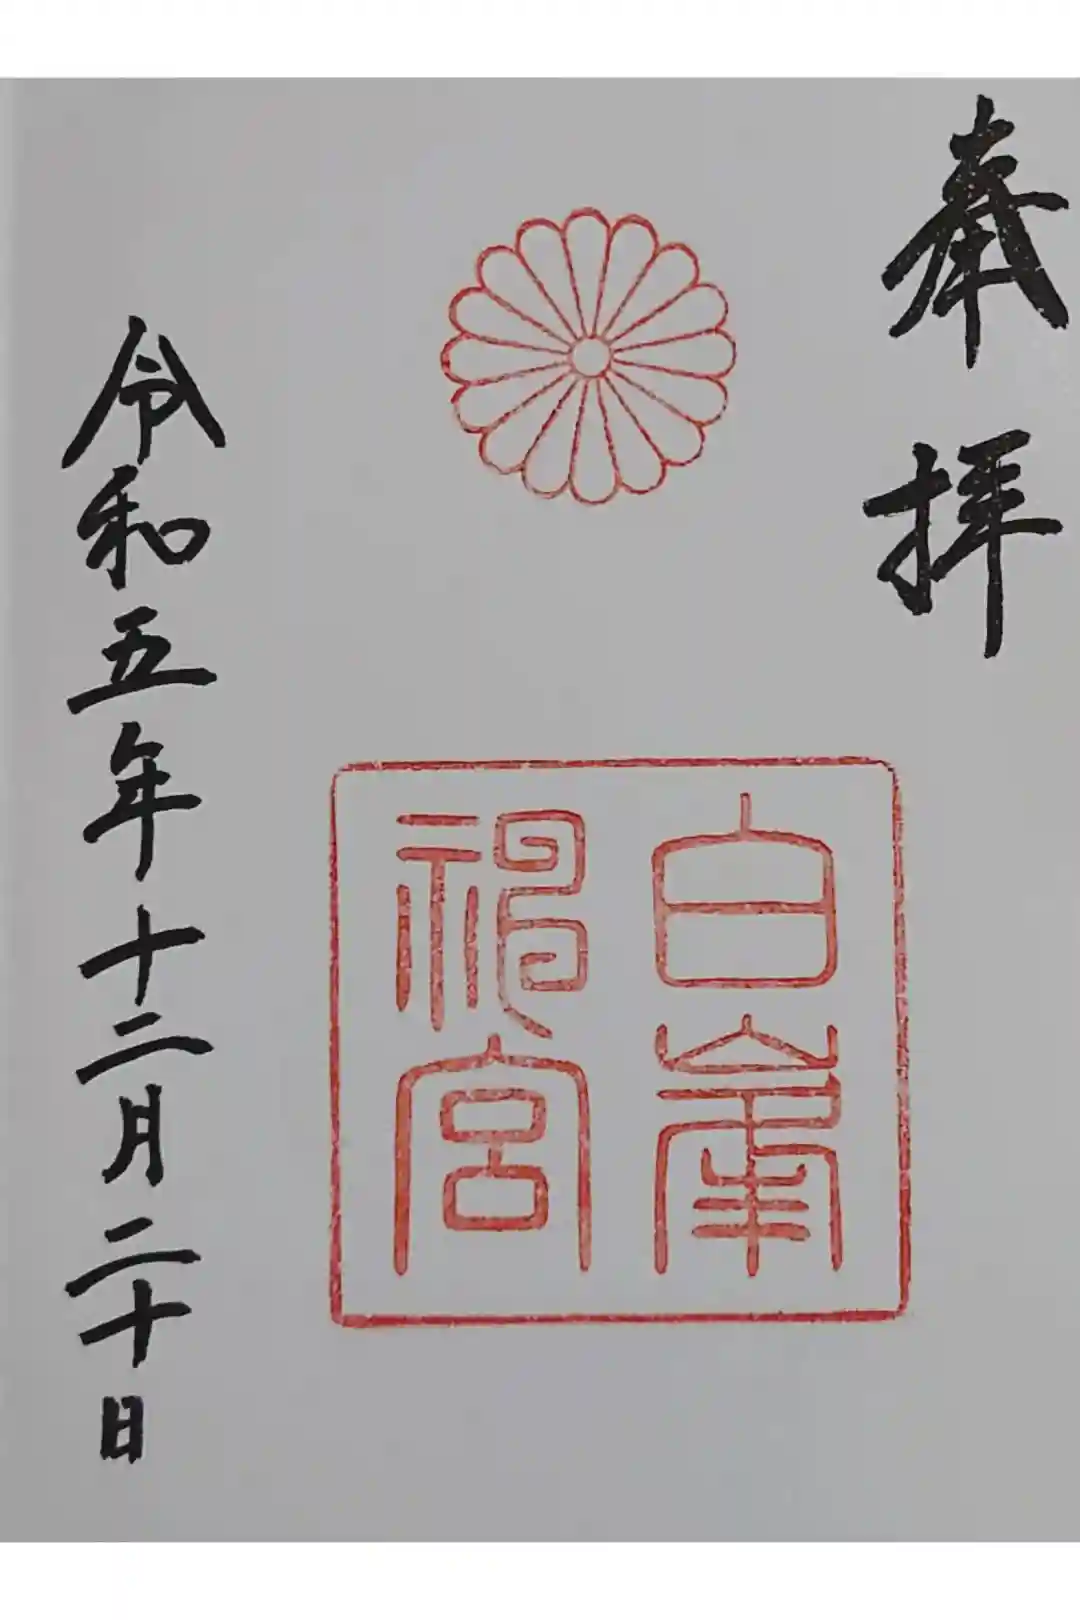 奉拝
白峯
神宮
令和五年十二月二十日